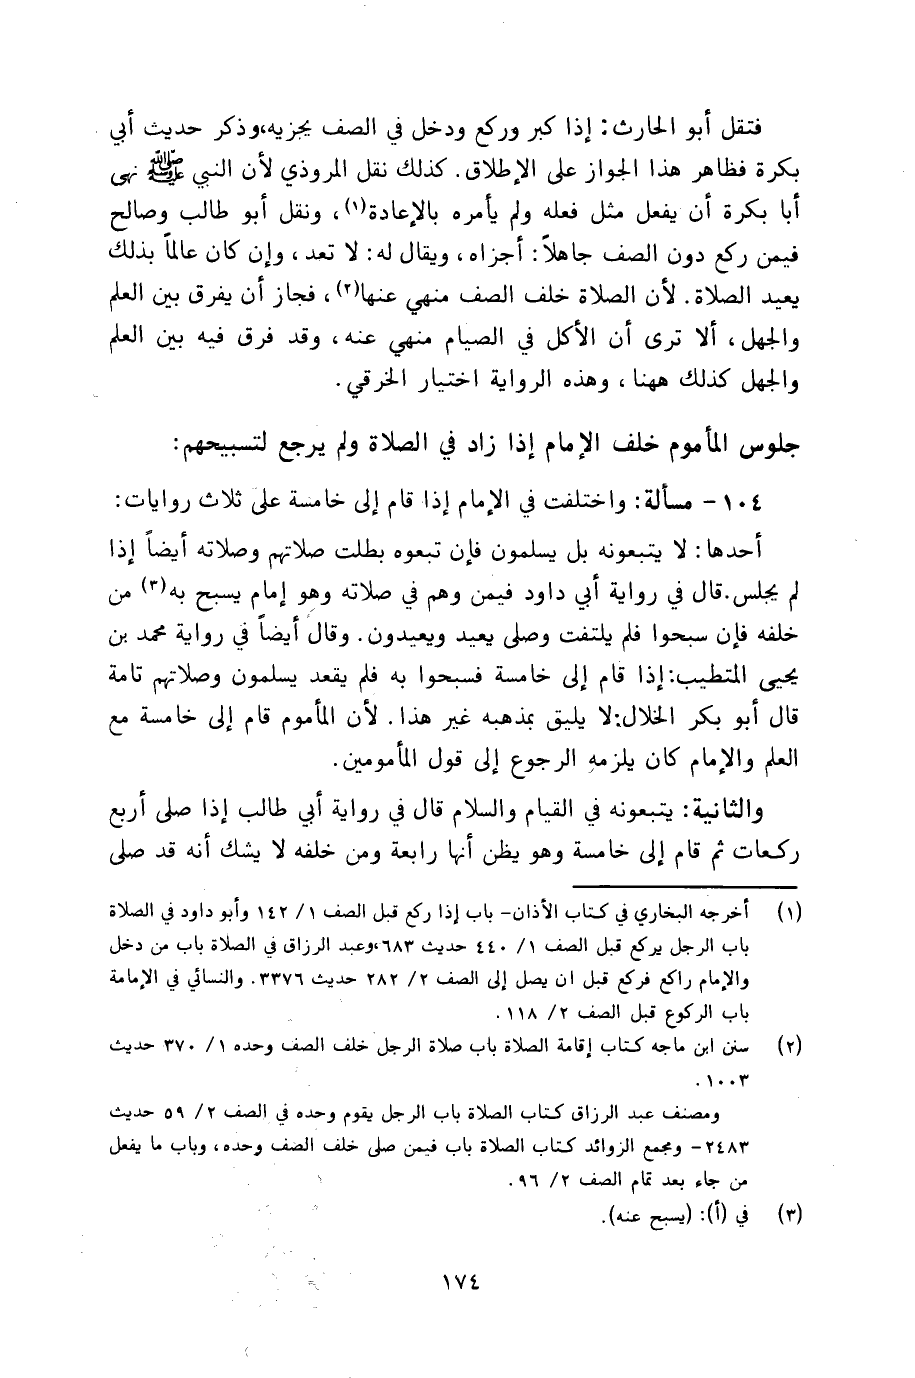 فتقل أبو الحارث: إذا كبر وركع ودخل في الصف يجزيه،وذكر حديث أبي
بكرة فظاهر هذا الجواز على الإطلاق. كذلك نقل المروذي لأن النبي ﷺ نهى
أبا بكرة أن يفعل مثل فعله ولم يأمره بالإعادة(١)، ونقل أبو طالب وصالح
فيمن ركع دون الصف جاهلاً: أجزاه، ويقال له: لا تعد، وإن كان عالماً بذلك
يعيد الصلاة. لأن الصلاة خلف الصف منهي عنها(٢)، فجاز أن يفرق بين العلم
والجهل، ألا ترى أن الأكل في الصيام منهي عنه، وقد فرق فيه بين العلم
والجهل كذلك ههنا، وهذه الرواية اختيار الخرقي.
جلوس المأموم خلف الإمام إذا زاد في الصلاة ولم يرجع لتسبيحهم:
١٠٤ - مسألة: واختلفت في الإمام إذا قام إلى خامسة على ثلاث روايات:
أحدها: لا يتبعونه بل يسلمون فإن تبعوه بطلت صلاتهم وصلاته أيضاً إذا
لم يجلس.قال في رواية أبي داود فيمن وهم في صلاته وهو إمام يسبح به(٣) من
خلفه فإن سبحوا فلم يلتفت وصلى يعيد ويعيدون. وقال أيضاً في رواية محمد بن
يحيى المتطيب:إذا قام إلى خامسة فسبحوا به فلم يقعد يسلمون وصلاتهم تامة
قال أبو بكر الخلال:لا يليق بمذهبه غير هذا. لأن المأموم قام إلى خامسة مع
العلم والإمام كان يلزمه الرجوع إلى قول المأمومين.
والثانية: يتبعونه في القيام والسلام قال في رواية أبي طالب إذا صلى أربع
ركعات ثم قام إلى خامسة وهو يظن أنها رابعة ومن خلفه لا يشك أنه قد صلى
(١) أخرجه البخاري في كتاب الأذان- باب إذا ركع قبل الصف ١/ ١٤٢ وأبو داود في الصلاة
باب الرجل يركع قبل الصف ١/ ٤٤٠ حديث ٦٨٣،وعبد الرزاق في الصلاة باب من دخل
والإمام راكع فركع قبل ان يصل إلى الصف ٢/ ٢٨٢ حديث ٣٣٧٦. والنسائي في الإمامة
باب الركوع قبل الصف ٢/ ١١٨.
(٢) سنن ابن ماجه كتاب إقامة الصلاة باب صلاة الرجل خلف الصف وحده ١/ ٣٧٠ حديث
١٠٠٣.
ومصنف عبد الرزاق كتاب الصلاة باب الرجل يقوم وحده في الصف ٢/ ٥٩ حديث
٢٤٨٣- ومجمع الزوائد كتاب الصلاة باب فيمن صلى خلف الصف وحده، وباب ما يفعل
من جاء بعد تمام الصف ٢/ ٩٦.
(٣) في (أ): (يسبح عنه).
١٧٤